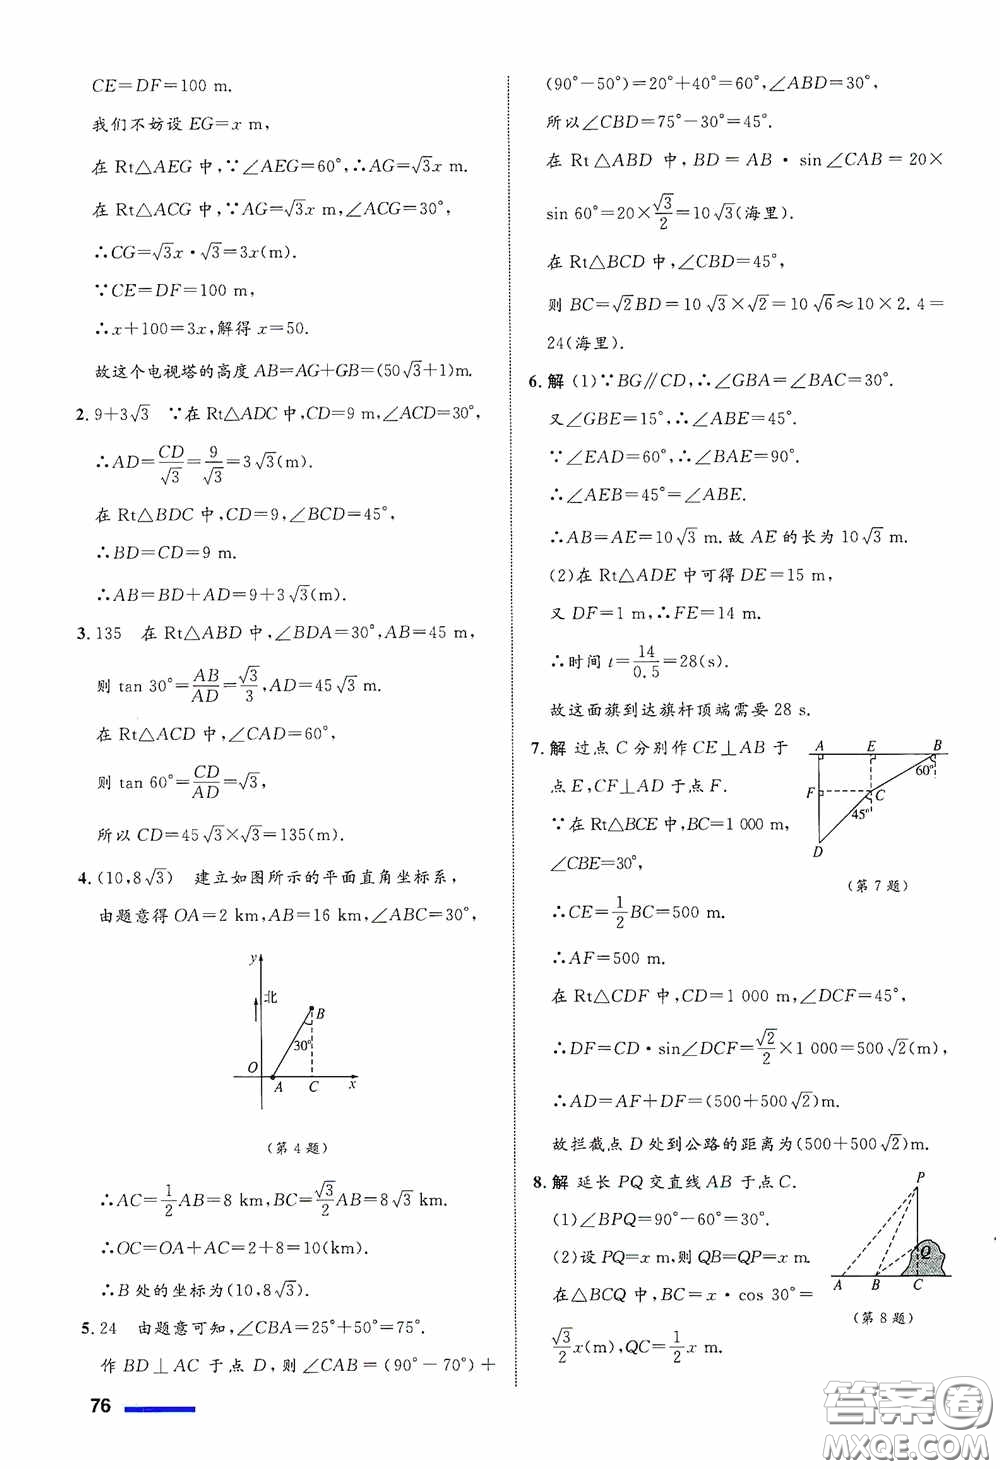 CE=DF=100 m.
我们不妨设 EG=x m,
在 Rt△AEG 中,∵∠AEG=60°,∴AG=√3x m.
在 Rt△ACG 中,∵AG=√3x m,∠ACG=30°,
∴CG=√3x·√3=3x(m).
∵CE=DF=100 m,
∴x+100=3x,解得 x=50.
故这个电视塔的高度 AB=AG+GB=(50√3+1)m.
2. 9+3√3 ∵在 Rt△ADC 中,CD=9 m,∠ACD=30°,
∴AD=CD/√3=9/√3=3√3(m).
在 Rt△BDC 中,CD=9,∠BCD=45°,
∴BD=CD=9 m.
∴AB=BD+AD=9+3√3(m).
3. 135 在 Rt△ABD 中,∠BDA=30°,AB=45 m,
则 tan 30°=AB/AD=√3/3,AD=45√3 m.
在 Rt△ACD 中,∠CAD=60°,
则 tan 60°=CD/AD=√3,
所以 CD=45√3×√3=135(m).
4. (10,8√3) 建立如图所示的平面直角坐标系,
由题意得 OA=2 km,AB=16 km,∠ABC=30°,
y
北
B
30°
O
A C x
(第 4 题)
∴AC=1/2AB=8 km,BC=√3/2AB=8√3 km.
∴OC=OA+AC=2+8=10(km).
∴B 处的坐标为(10,8√3).
5. 24 由题意可知,∠CBA=25°+50°=75°.
作 BD⊥AC 于点 D,则∠CAB=(90°-70°)+
76
(90°-50°)=20°+40°=60°,∠ABD=30°,
所以∠CBD=75°-30°=45°.
在 Rt△ABD 中,BD=AB·sin∠CAB=20×
sin 60°=20×√3/2=10√3(海里).
在 Rt△BCD 中,∠CBD=45°,
则 BC=√2BD=10√3×√2=10√6≈10×2.4=
24(海里).
6. 解 (1)∵BG∥CD,∴∠GBA=∠BAC=30°.
又∠GBE=15°,∴∠ABE=45°.
∵∠EAD=60°,∴∠BAE=90°.
∴∠AEB=45°=∠ABE.
∴AB=AE=10√3 m.故 AE 的长为 10√3 m.
(2)在 Rt△ADE 中可得 DE=15 m,
又 DF=1 m,∴FE=14 m.
∴时间 t=14/0.5=28(s).
故这面旗到达旗杆顶端需要 28 s.
7. 解 过点 C 分别作 CE⊥AB 于
点 E,CF⊥AD 于点 F.
∵在 Rt△BCE 中,BC=1 000 m,
∠CBE=30°,
∴CE=1/2BC=500 m.
∴AF=500 m.
A E B
60°
F C
45°
D
(第 7 题)
在 Rt△CDF 中,CD=1 000 m,∠DCF=45°,
∴DF=CD·sin∠DCF=√2/2×1 000=500√2(m),
∴AD=AF+DF=(500+500√2)m.
故拦截点 D 处到公路的距离为(500+500√2)m.
8. 解 延长 PQ 交直线 AB 于点 C.
(1)∠BPQ=90°-60°=30°.
(2)设 PQ=x m,则 QB=QP=x m.
在△BCQ 中,BC=x·cos 30°=
√3/2x(m),QC=1/2x m.
P
Q
A B C
(第 8 题)
答案圈
MXQE.COM